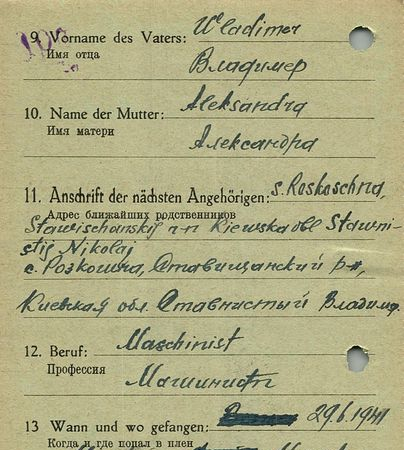 9. Vorname des Vaters: Wladimer
Имя отца
Владимер
10. Name der Mutter: Aleksandra
Имя матери
Александра
11. Anschrift der nächsten Angehörigen: s. Roskoschna,
Адрес ближайших родственников
Stawischanskij r-n Kiewska obl Stawni-
stij Nikolaj
с. Розкошна, Ставищанский р-н,
Киевская обл. Ставнистый Владим.
12. Beruf: Maschinist
Профессия
Машинист
13 Wann und wo gefangen: 29.6.1941
Когда и где попал в плен